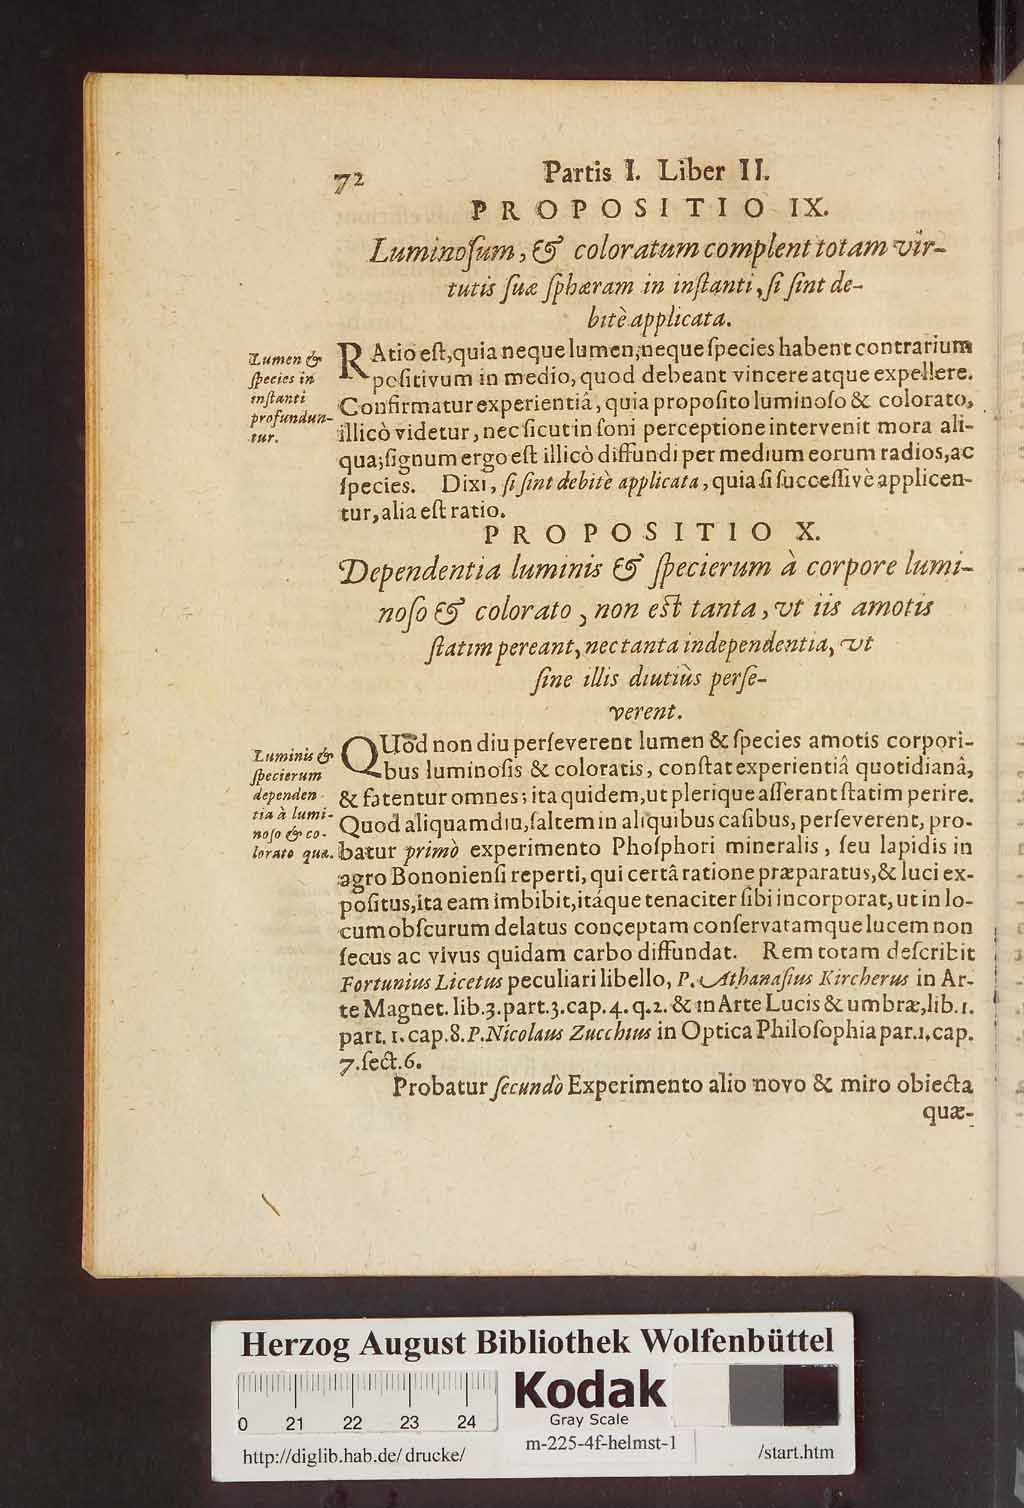 72 Partis I. Liber II.
PROPOSITIO IX.
Luminoſum, & coloratum complent totam vir-
tutis ſuæ ſphæram in inſtanti, ſi ſint de-
bitè applicata.
Lumen &
ſpecies in
inſtanti
profundun-
tur.
RAtio eſt, quia neque lumen, neque ſpecies habent contrarium
poſitivum in medio, quod debeant vincere atque expellere.
Confirmatur experientiâ, quia propoſito luminoſo & colorato,
illicò videtur, nec ſicut in ſoni perceptione intervenit mora ali-
qua; ſignum ergo eſt illicò diffundi per medium eorum radios, ac
ſpecies. Dixi, ſi ſint debitè applicata, quia ſi ſucceſſivè applicen-
tur, alia eſt ratio.
PROPOSITIO X.
Dependentia luminis & ſpecierum à corpore lumi-
noſo & colorato, non eſt tanta, vt iis amotis
ſtatim pereant, nec tanta independentia, vt
ſine illis diutiùs perſe-
verent.
Luminis &
ſpecierum
dependen-
tia à lumi-
noſo & co-
lorato quæ.
QUòd non diu perſeverent lumen & ſpecies amotis corpori-
bus luminoſis & coloratis, conſtat experientiâ quotidianâ,
& fatentur omnes; ita quidem, ut plerique aſſerant ſtatim perire.
Quod aliquamdiu, ſaltem in aliquibus caſibus, perſeverent, pro-
batur primò experimento Phoſphori mineralis, ſeu lapidis in
agro Bononienſi reperti, qui certâ ratione præparatus, & luci ex-
poſitus, ita eam imbibit, itáque tenaciter ſibi incorporat, ut in lo-
cum obſcurum delatus conceptam conſervatamque lucem non
ſecus ac vivus quidam carbo diffundat. Rem totam deſcribit
Fortunius Licetus peculiari libello, P. Athanaſius Kircherus in Ar-
te Magnet. lib.3. part.3. cap.4. q.2. & in Arte Lucis & umbræ, lib.1.
part. 1. cap.8. P. Nicolaus Zucchius in Optica Philoſophia par.1. cap.
7. ſect.6.
Probatur ſecundò Experimento alio novo & miro obiecta
quæ-
Herzog August Bibliothek Wolfenbüttel
0 21 22 23 24
Kodak
Gray Scale
http://diglib.hab.de/drucke/ m-225-4f-helmst-1 /start.htm